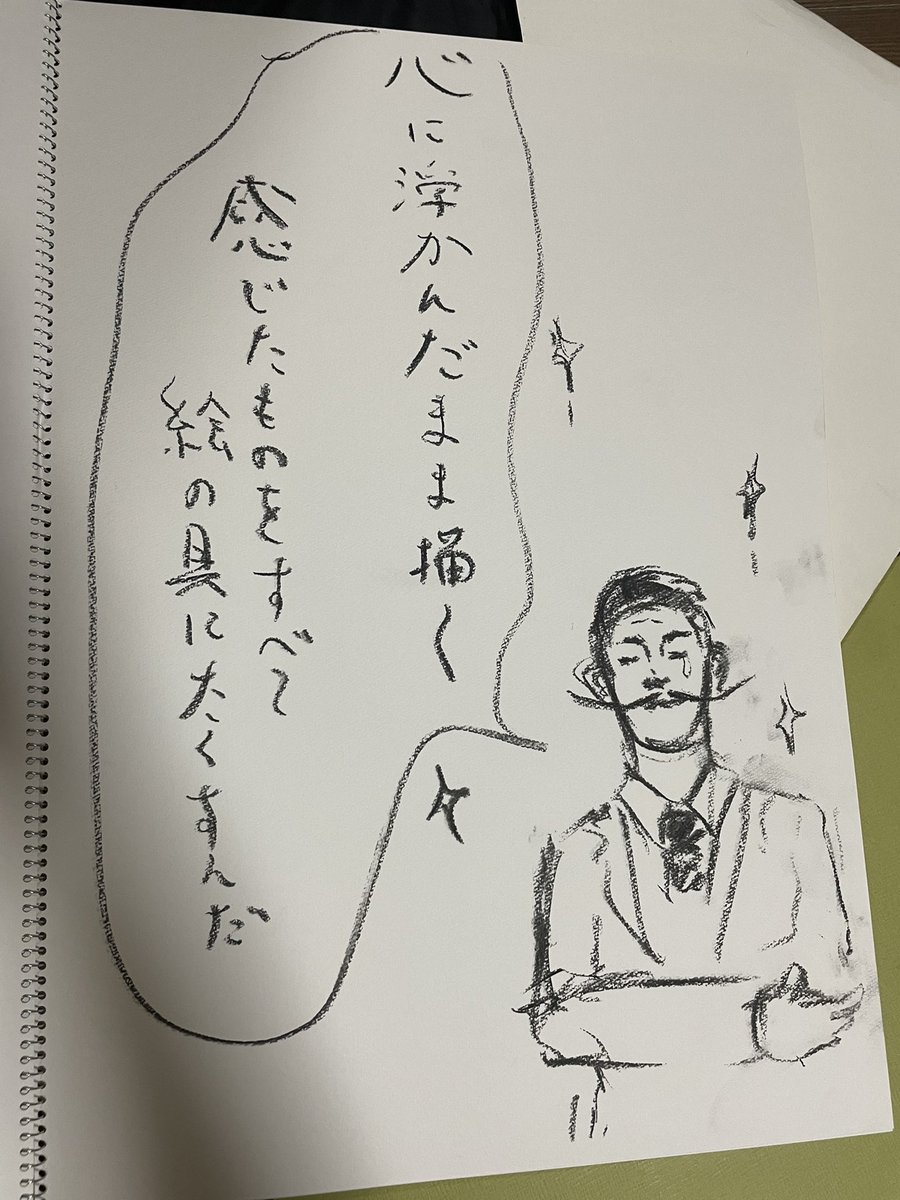 心に浮かんだまま描く
感じたものをすべて
絵の具にたくすんだ